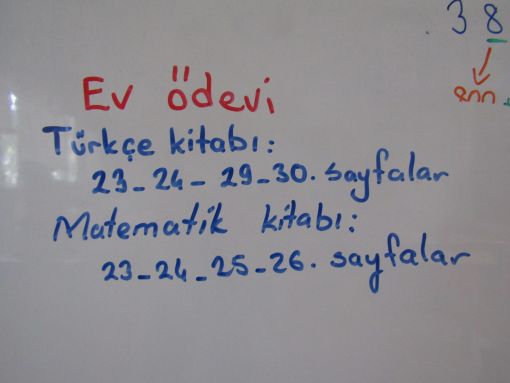 38
Ev ödevi
Türkçe kitabı:
23-24-29-30. sayfalar
Matematik kitabı:
23-24-25-26. sayfalar